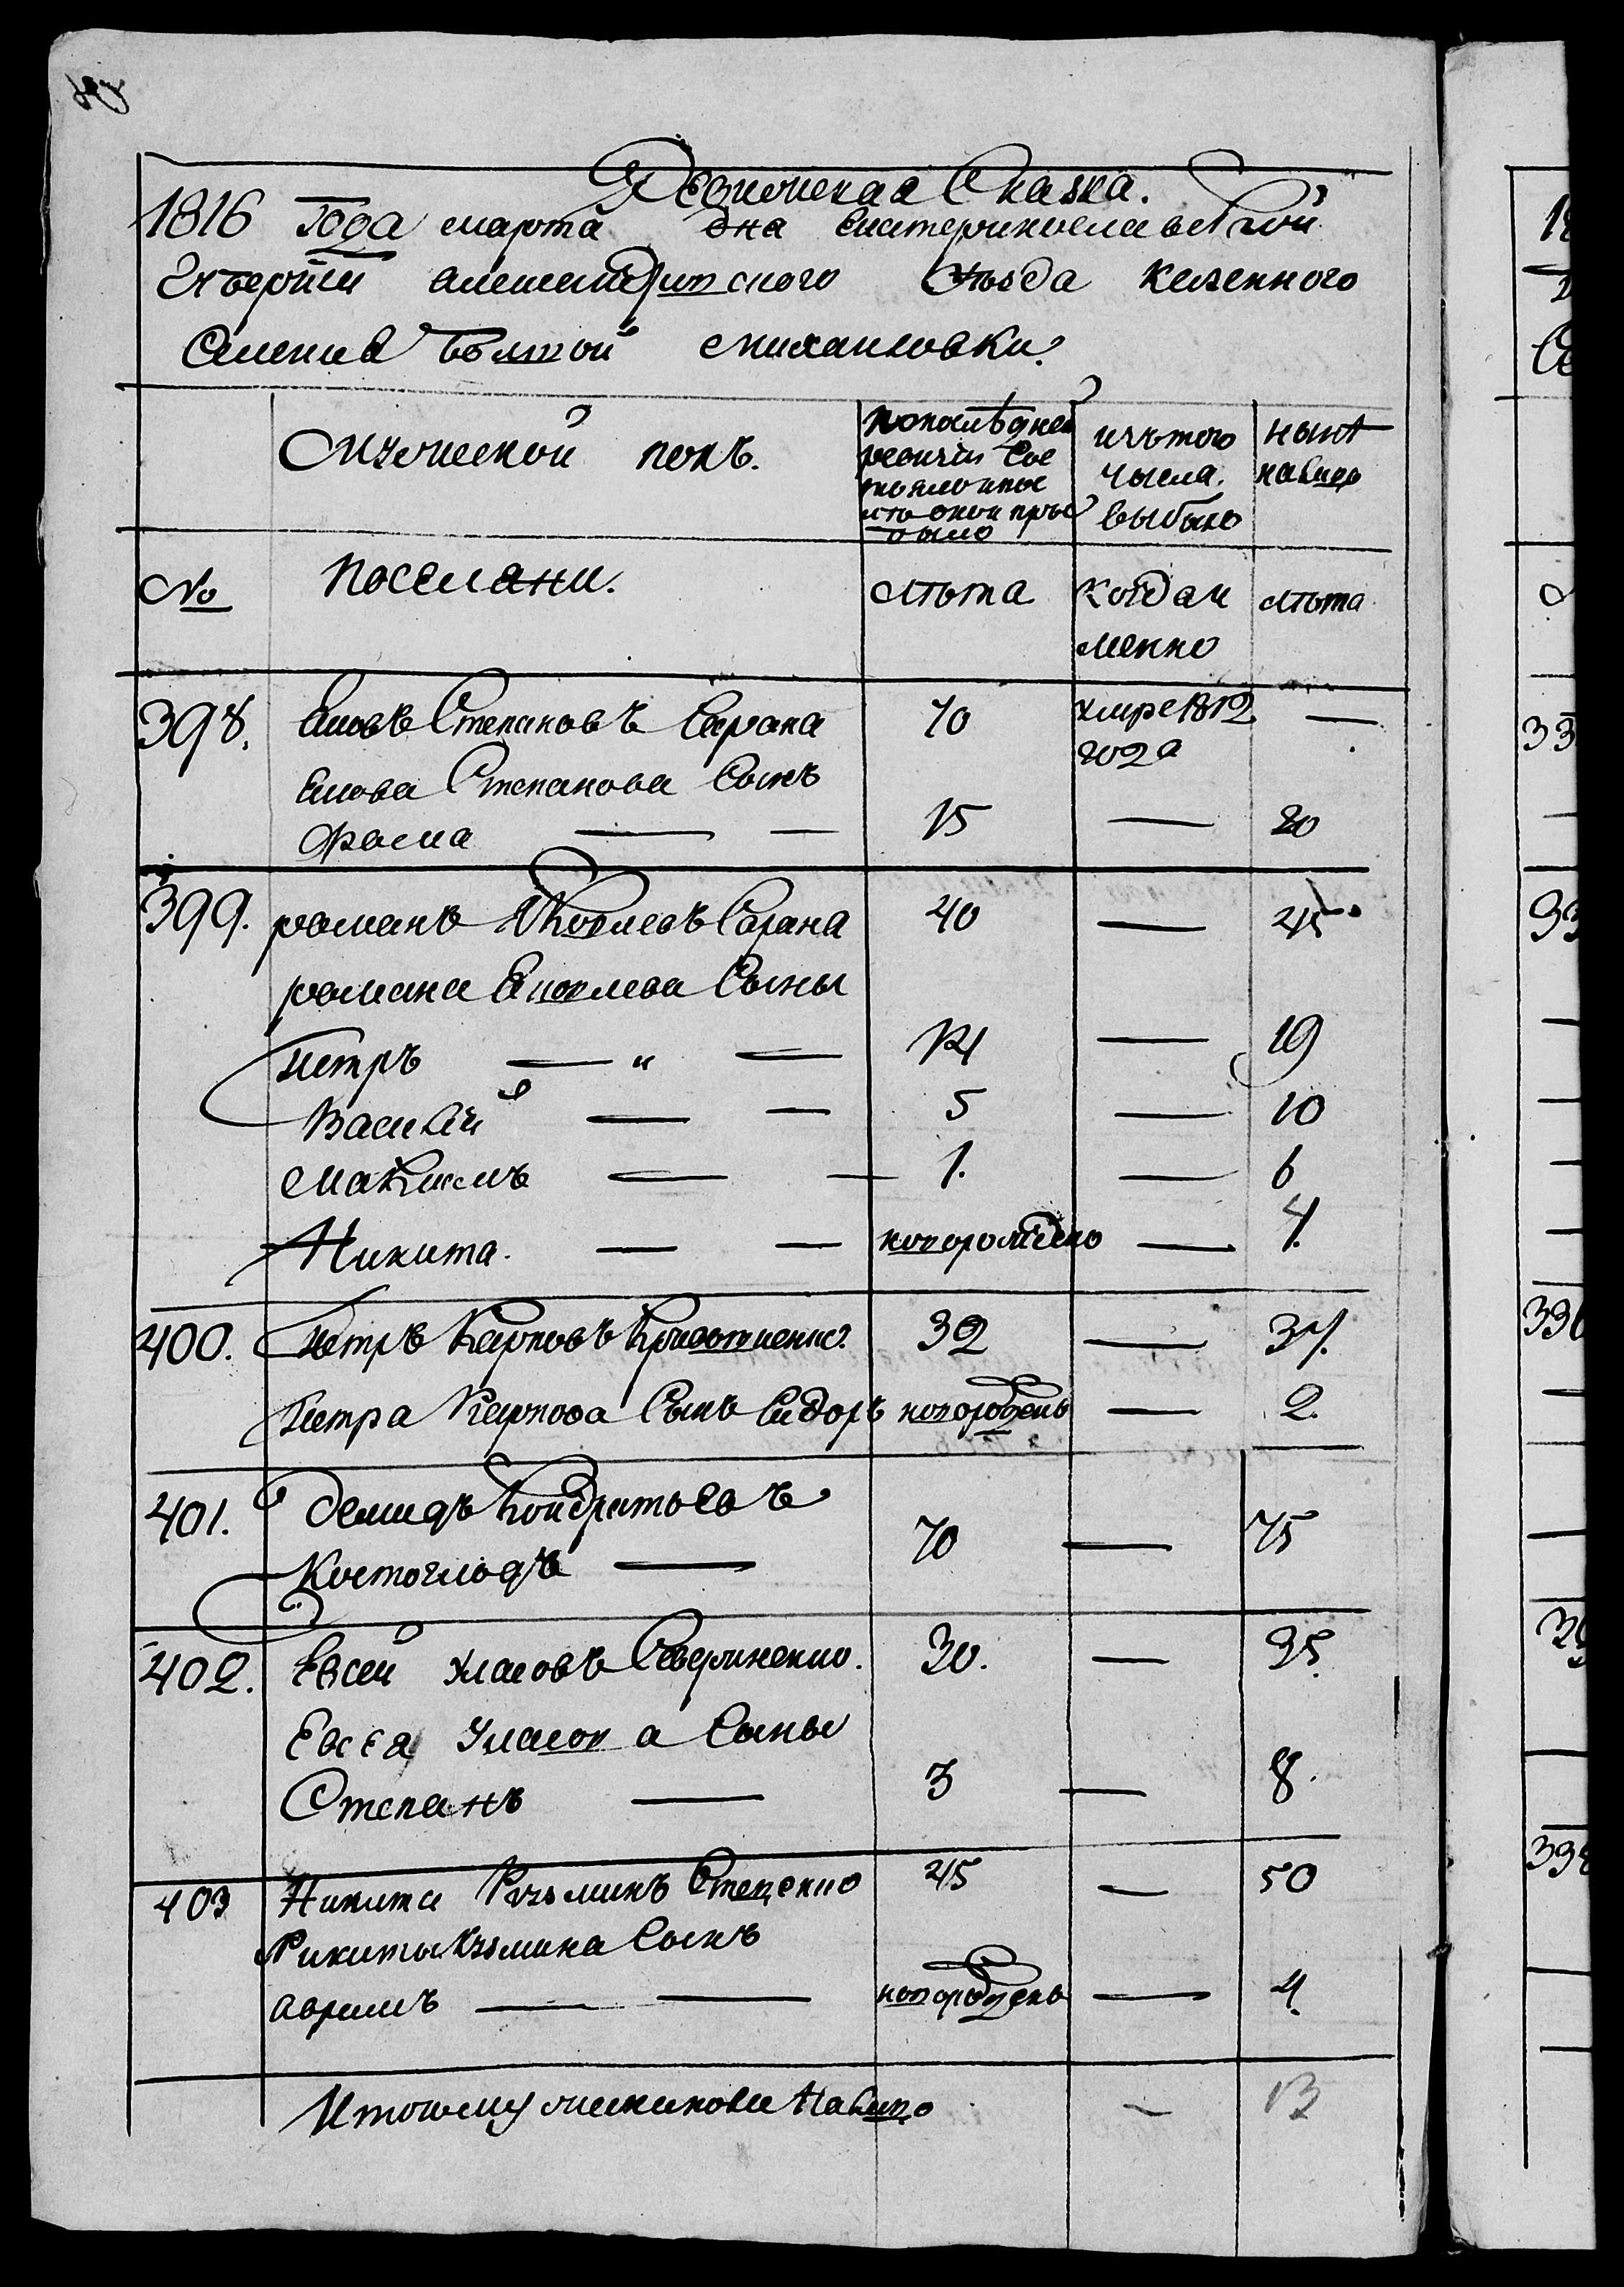 Ревижская Сказка.
1816 года марта дня Екатеринославской
Губернии александрийского уѣзда казенного
Селения Болтой михаиловки
Мужеской полъ.
попослѣдней ревизіи Сос тояло ипос лѣ оной при было
изътого числа. выбыло
нынѣ налицо
№
Поселяни.
лѣта
Когда и менно
лѣта
398. Яковъ Степановъ Сарана 70 умре 1812 года —
Якова Степанова Сынъ
Фома — — 15 — 20
399. романъ Яковлевъ Сарана 40 — 45
романа Яковлева Сыны
Петръ — „ — 14 — 19
Василій — — 5 — 10
Максимъ — — 1. — 6
Никита. — — новорожденo — 4.
400. Петръ Карповъ 32 — 37.
Петра Карпова Сынъ Сидоръ новорожденъ — 2.
401. Демидъ Кондратьевъ
Костоглодъ — 70 — 75
402. Евсей Уласовъ Севериненко. 30. — 35.
Евсея Уласова Сыны
Степанъ — 3 — 8.
403 Никита Кузьминъ Стеценко 45 — 50
Никиты Кузьмина Сынъ
Аврамъ — — новорожденъ — 4.
Итого мужеска налицо — 13